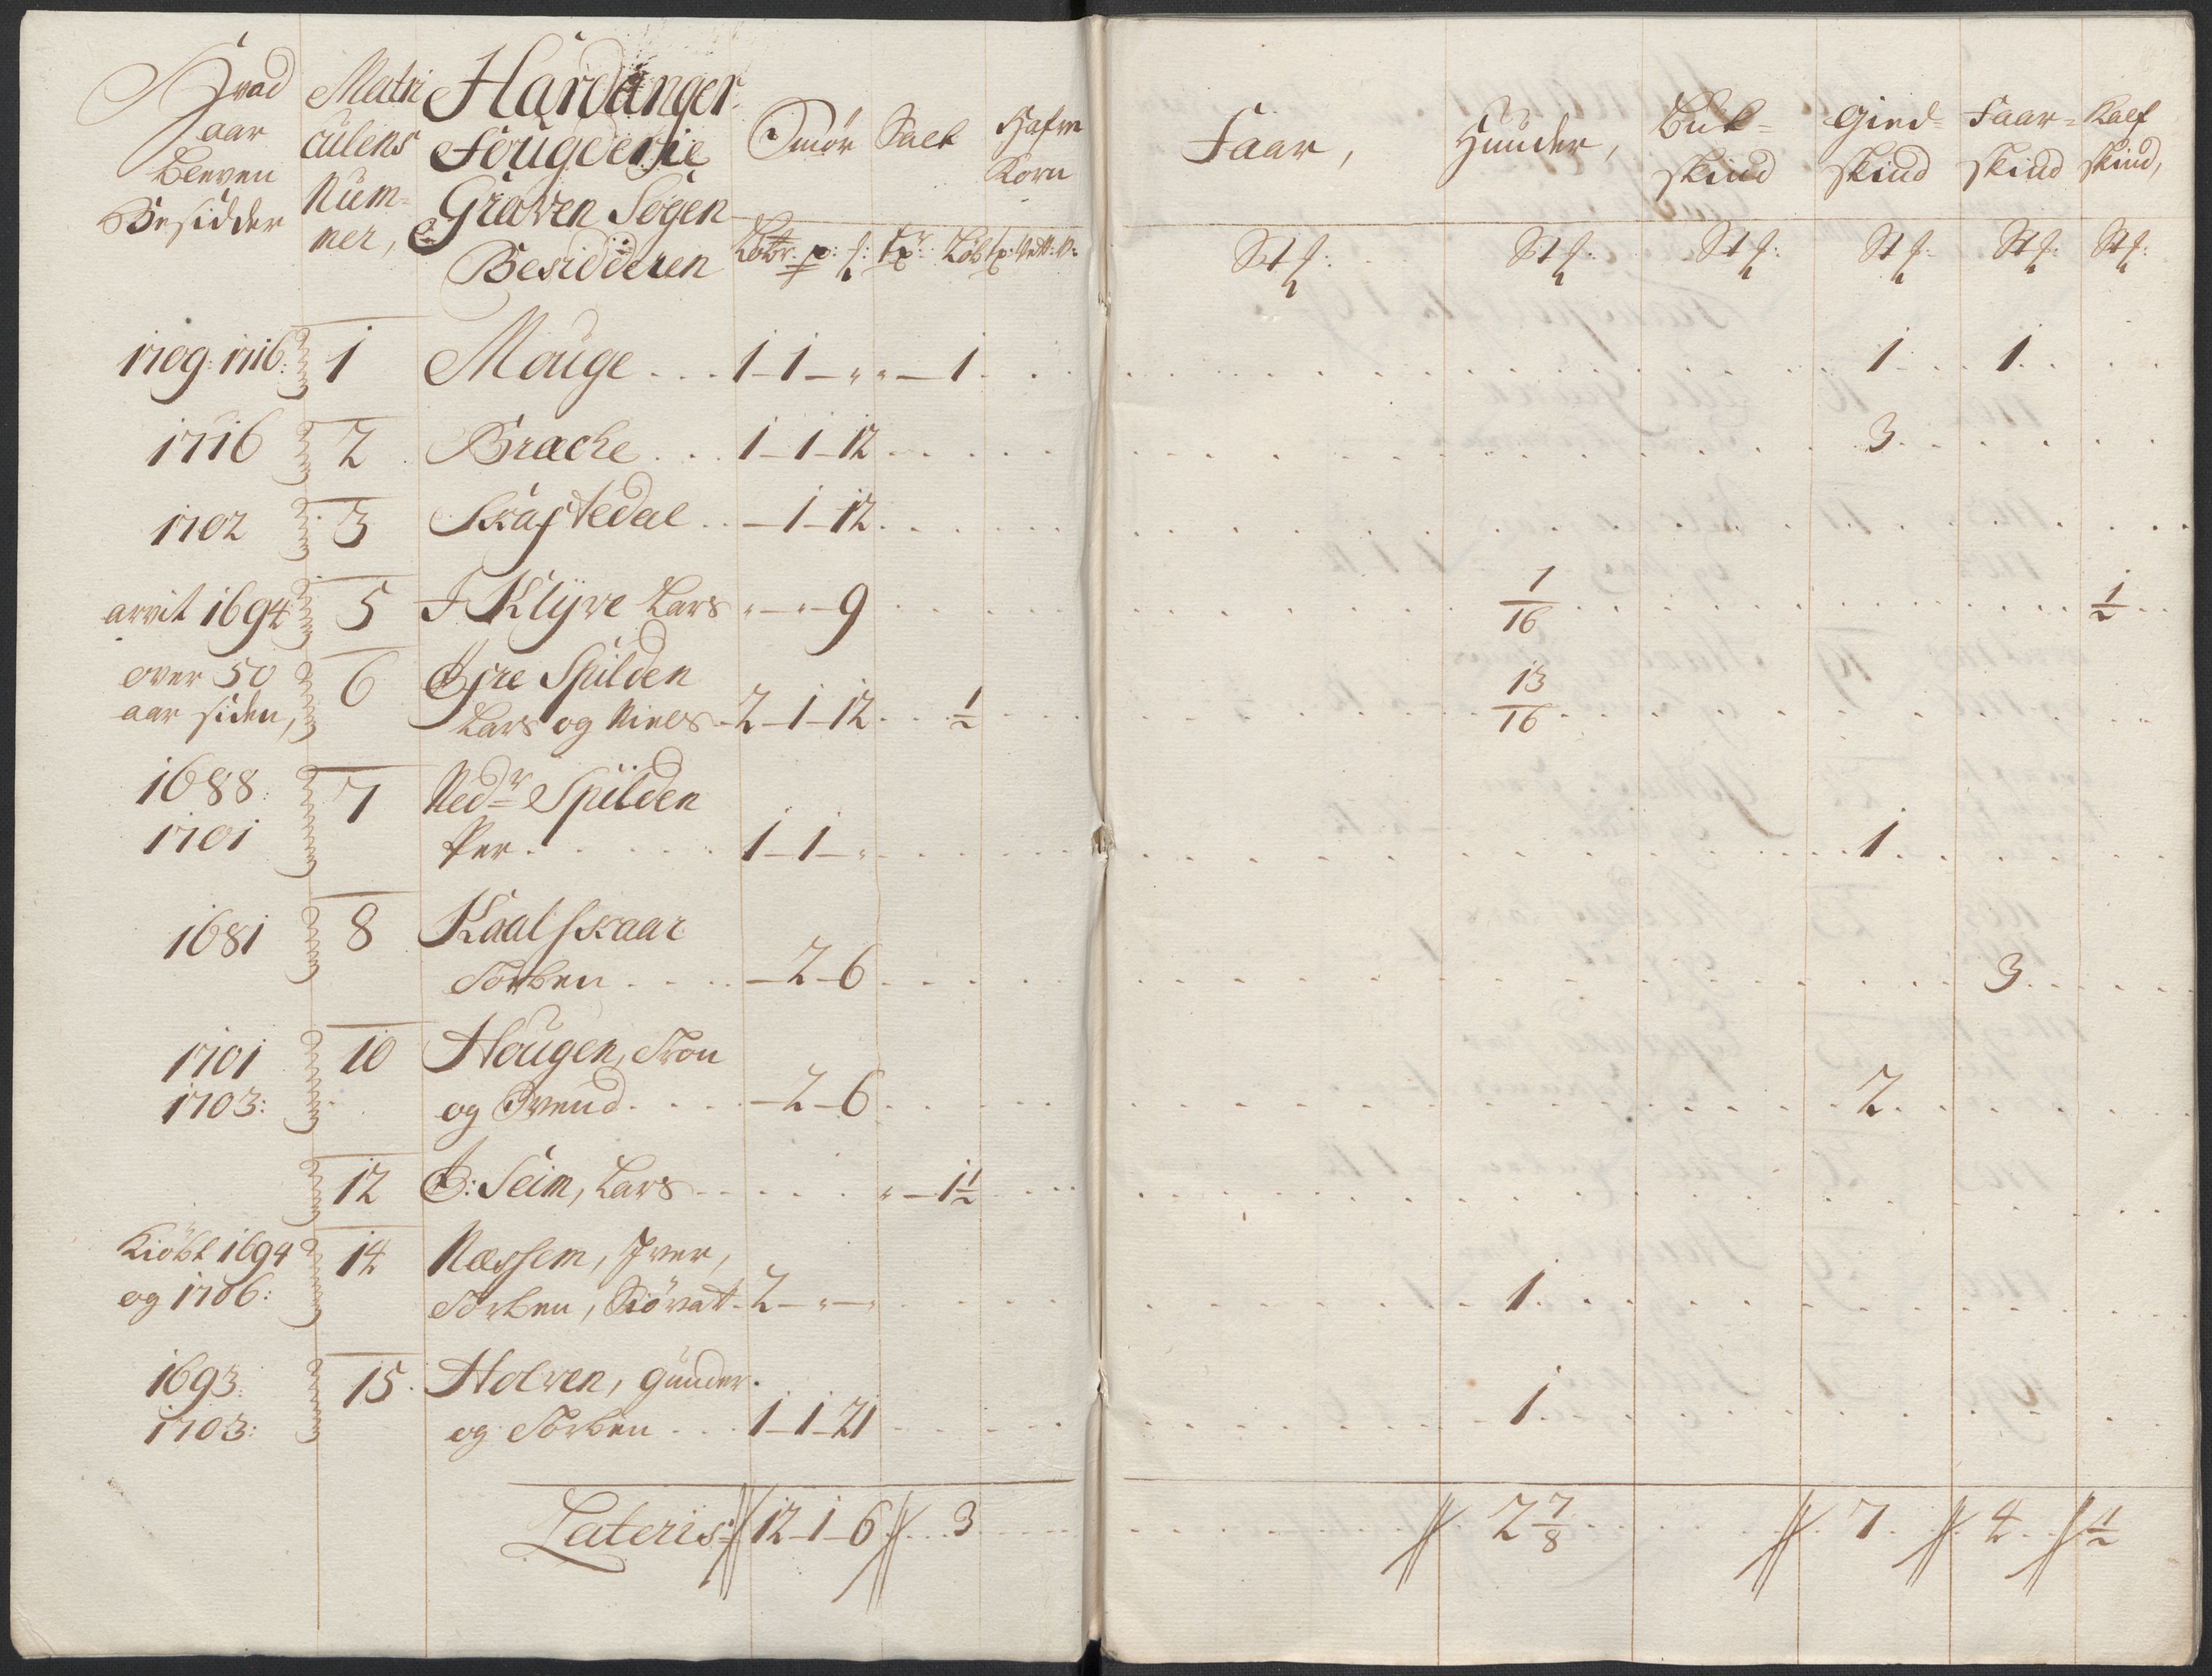 Hvad aar bleven Besidder
Matriculens Nummer,
Hardanger
Fougderie
Graven Sogen
Besidderen
Smör Salt Hafre Korn
Faar, Huuder, Buk=skind Gied=skind Faar=skind Kalfskind,
St f: St f: St f: St f: St f: St f:
1709: 1716: 1 Mouge . . . 1-1-„ „-1 . . 1 . . 1 . .
1716 2 Brache . . . 1-1-12 . . . 3 . .
1702 3 Skaftedal . . -1-12 . . .
arvit 1694 5 I Klÿve Lars „-„-9 . . . 1/16 . . . 1/2 . .
over 50 6 Øfre Spilden
aar siden, Lars og Niels-2-1-12 . . . 1/2 . . . 13/16 . . .
1688: 7 Nedr Spilden
1701 Per . . . 1-1-„ . . . 1 . . .
1681 8 Kaalskaar
Torben . . . -2-6 . . . 3 . . .
1701 10 Hougen, Tron
1703: og Svend . . . -2-6 . . . 2 . . .
12 Ø: Seim, Lars . . . „-1 1/2 . . .
Kiöbt 1694 14 Næssem, Iver,
og 1706: Torben, Siövat-2-„-„ . . . 1 . . .
1693: 15. Holven, Gunder.
1703: og Torben . . . 1-1-21 . . . 1 . . .
Lateris 12-1-6 . . . 3 . . . 2 7/8 . . . 7 . . 4 . . 1/2